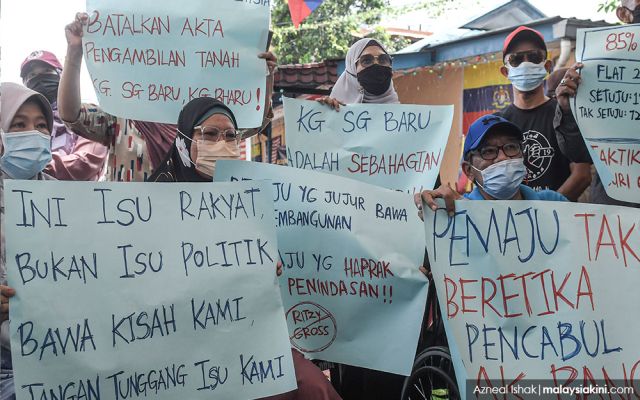 BATALKAN AKTA
PENGAMBILAN TANAH
KG. SG BARU, KG. BHARU !
KG SG BARU
ADALAH SEBAHAGIAN
85%
FLAT
SETUJU:
TAK SETUJU:
INI ISU RAKYAT,
BUKAN ISU POLITIK
BAWA KISAH KAMI,
JANGAN TUNGGANG ISU KAMI
JU YG JUJUR BAWA
EMBANGUNAN
JU YG HAPRAK
PENINDASAN!!
RITZY
GROSS
PEMAJU TAK
BERETIKA
PENCABUL
AK
Azneal Ishak | malaysiakini.com